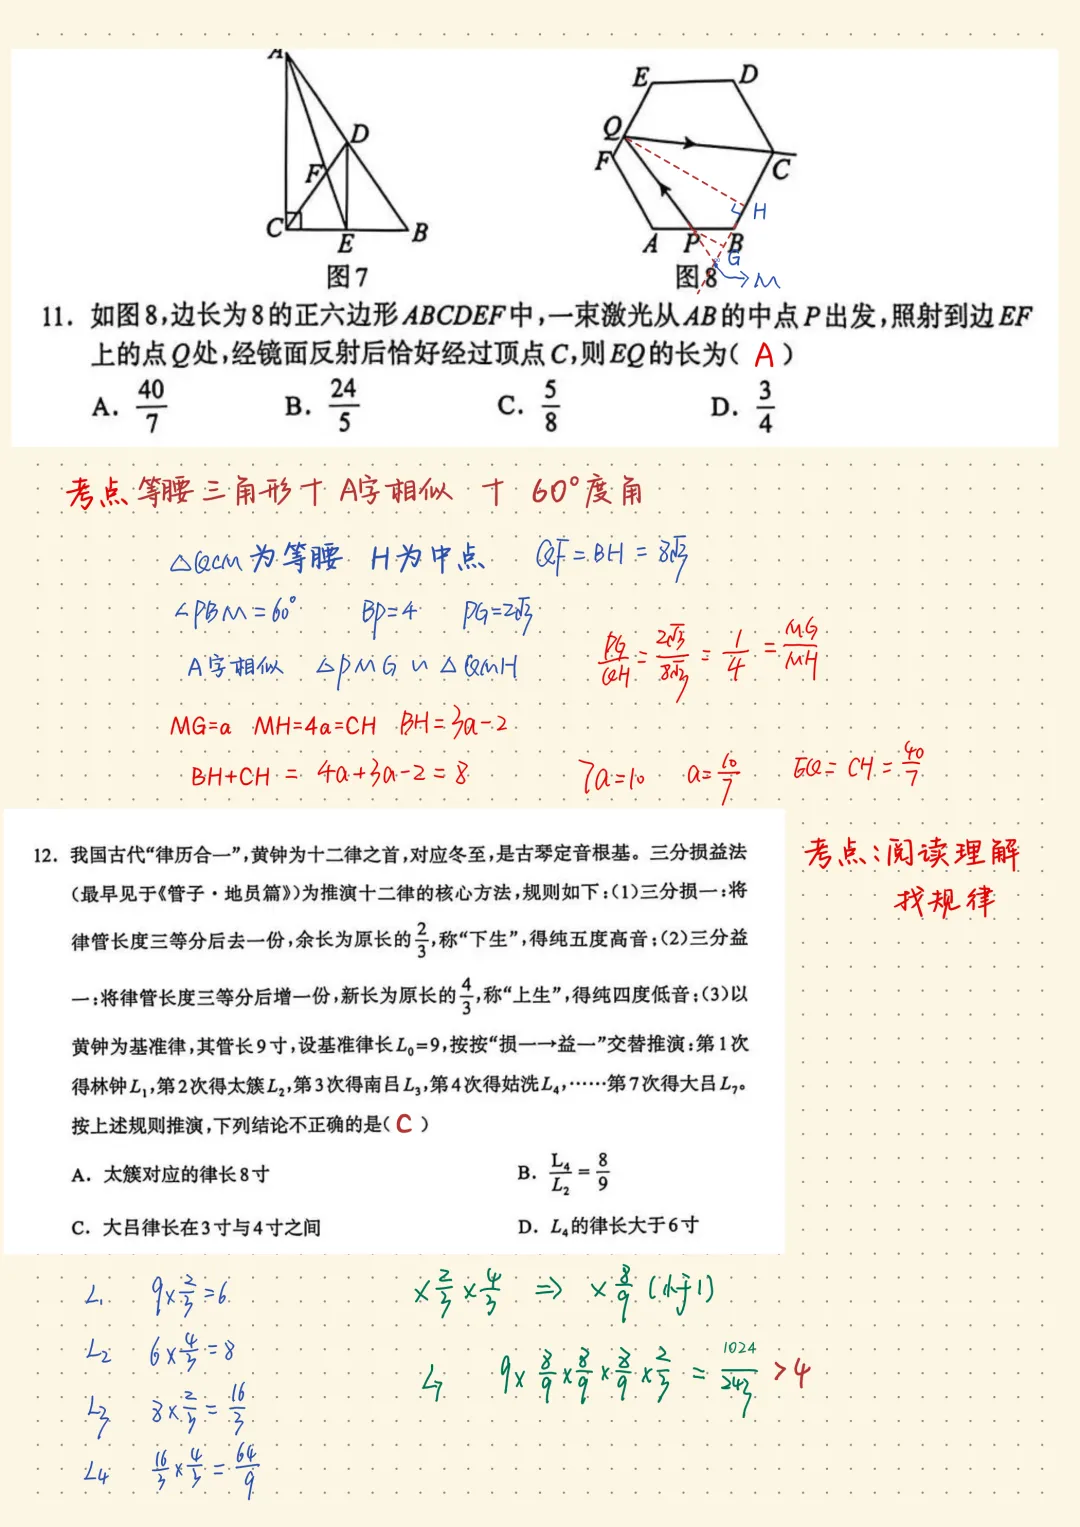 A
D
F
C
E
B
图7
E
D
Q
F
C
H
A
P
B
G
M
图8
11. 如图8,边长为8的正六边形ABCDEF中,一束激光从AB的中点P出发,照射到边EF
上的点Q处,经镜面反射后恰好经过顶点C,则EQ的长为( A )
A. 40/7 B. 24/5 C. 5/8 D. 3/4
考点 等腰三角形+ A字相似 + 60°度角
△QCM为等腰 H为中点 QF=BH=8√3
∠PBM=60° BP=4 PG=2√3
A字相似 △PMG∽△QMH
PG/QH=2√3/8√3=1/4=MG/MH
MG=a MH=4a=CH BH=3a-2
BH+CH = 4a+3a-2=8 7a=10 a=10/7 EQ=CH=40/7
12. 我国古代“律历合一”,黄钟为十二律之首,对应冬至,是古琴定音根基。三分损益法
(最早见于《管子·地员篇》)为推演十二律的核心方法,规则如下:(1)三分损一:将
律管长度三等分后去一份,余长为原长的2/3,称“下生”,得纯五度高音;(2)三分益
一:将律管长度三等分后增一份,新长为原长的4/3,称“上生”,得纯四度低音;(3)以
黄钟为基准律,其管长9寸,设基准律长L₀=9,按按“损一→益一”交替推演:第1次
得林钟L₁,第2次得太簇L₂,第3次得南吕L₃,第4次得姑洗L₄,……第7次得大吕L₇。
按上述规则推演,下列结论不正确的是( C )
A. 太簇对应的律长8寸 B. L₄/L₂=8/9
C. 大吕律长在3寸与4寸之间 D. L₄的律长大于6寸
考点:阅读理解
找规律
L₁ 9×2/3=6
L₂ 6×4/3=8
L₃ 8×2/3=16/3
L₄ 16/3×4/3=64/9
×2/3×4/3 ⇒ ×8/9 (小于1)
L₇ 9×8/9×8/9×8/9×2/3=1024/243>4